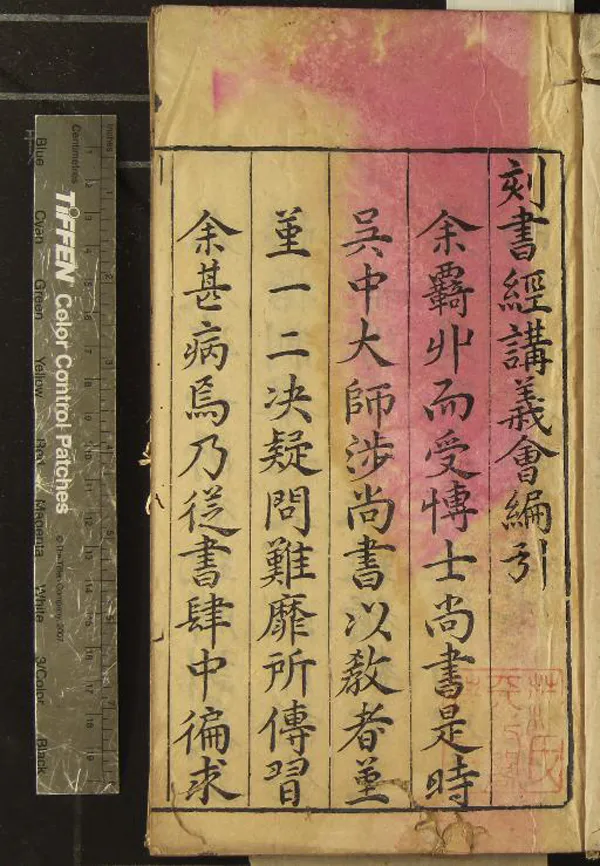 刻書經講義會編引
余覊丱而受愽士尚書是時
吳中大師涉尚書以敎者堇
堇一二决疑問難靡所傳習
余甚病焉乃從書肆中徧求
Inches
Centimetres
TIFFEN Color Control Patches
© The Tiffen Company, 2007
Blue Cyan Green Yellow Red Magenta White 3/Color Black